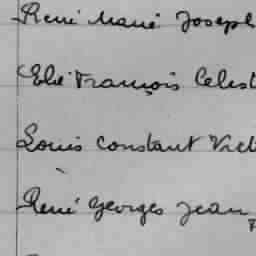 René Marie Joseph
Elie François Celest
Louis Constant Vict
René Georges Jean